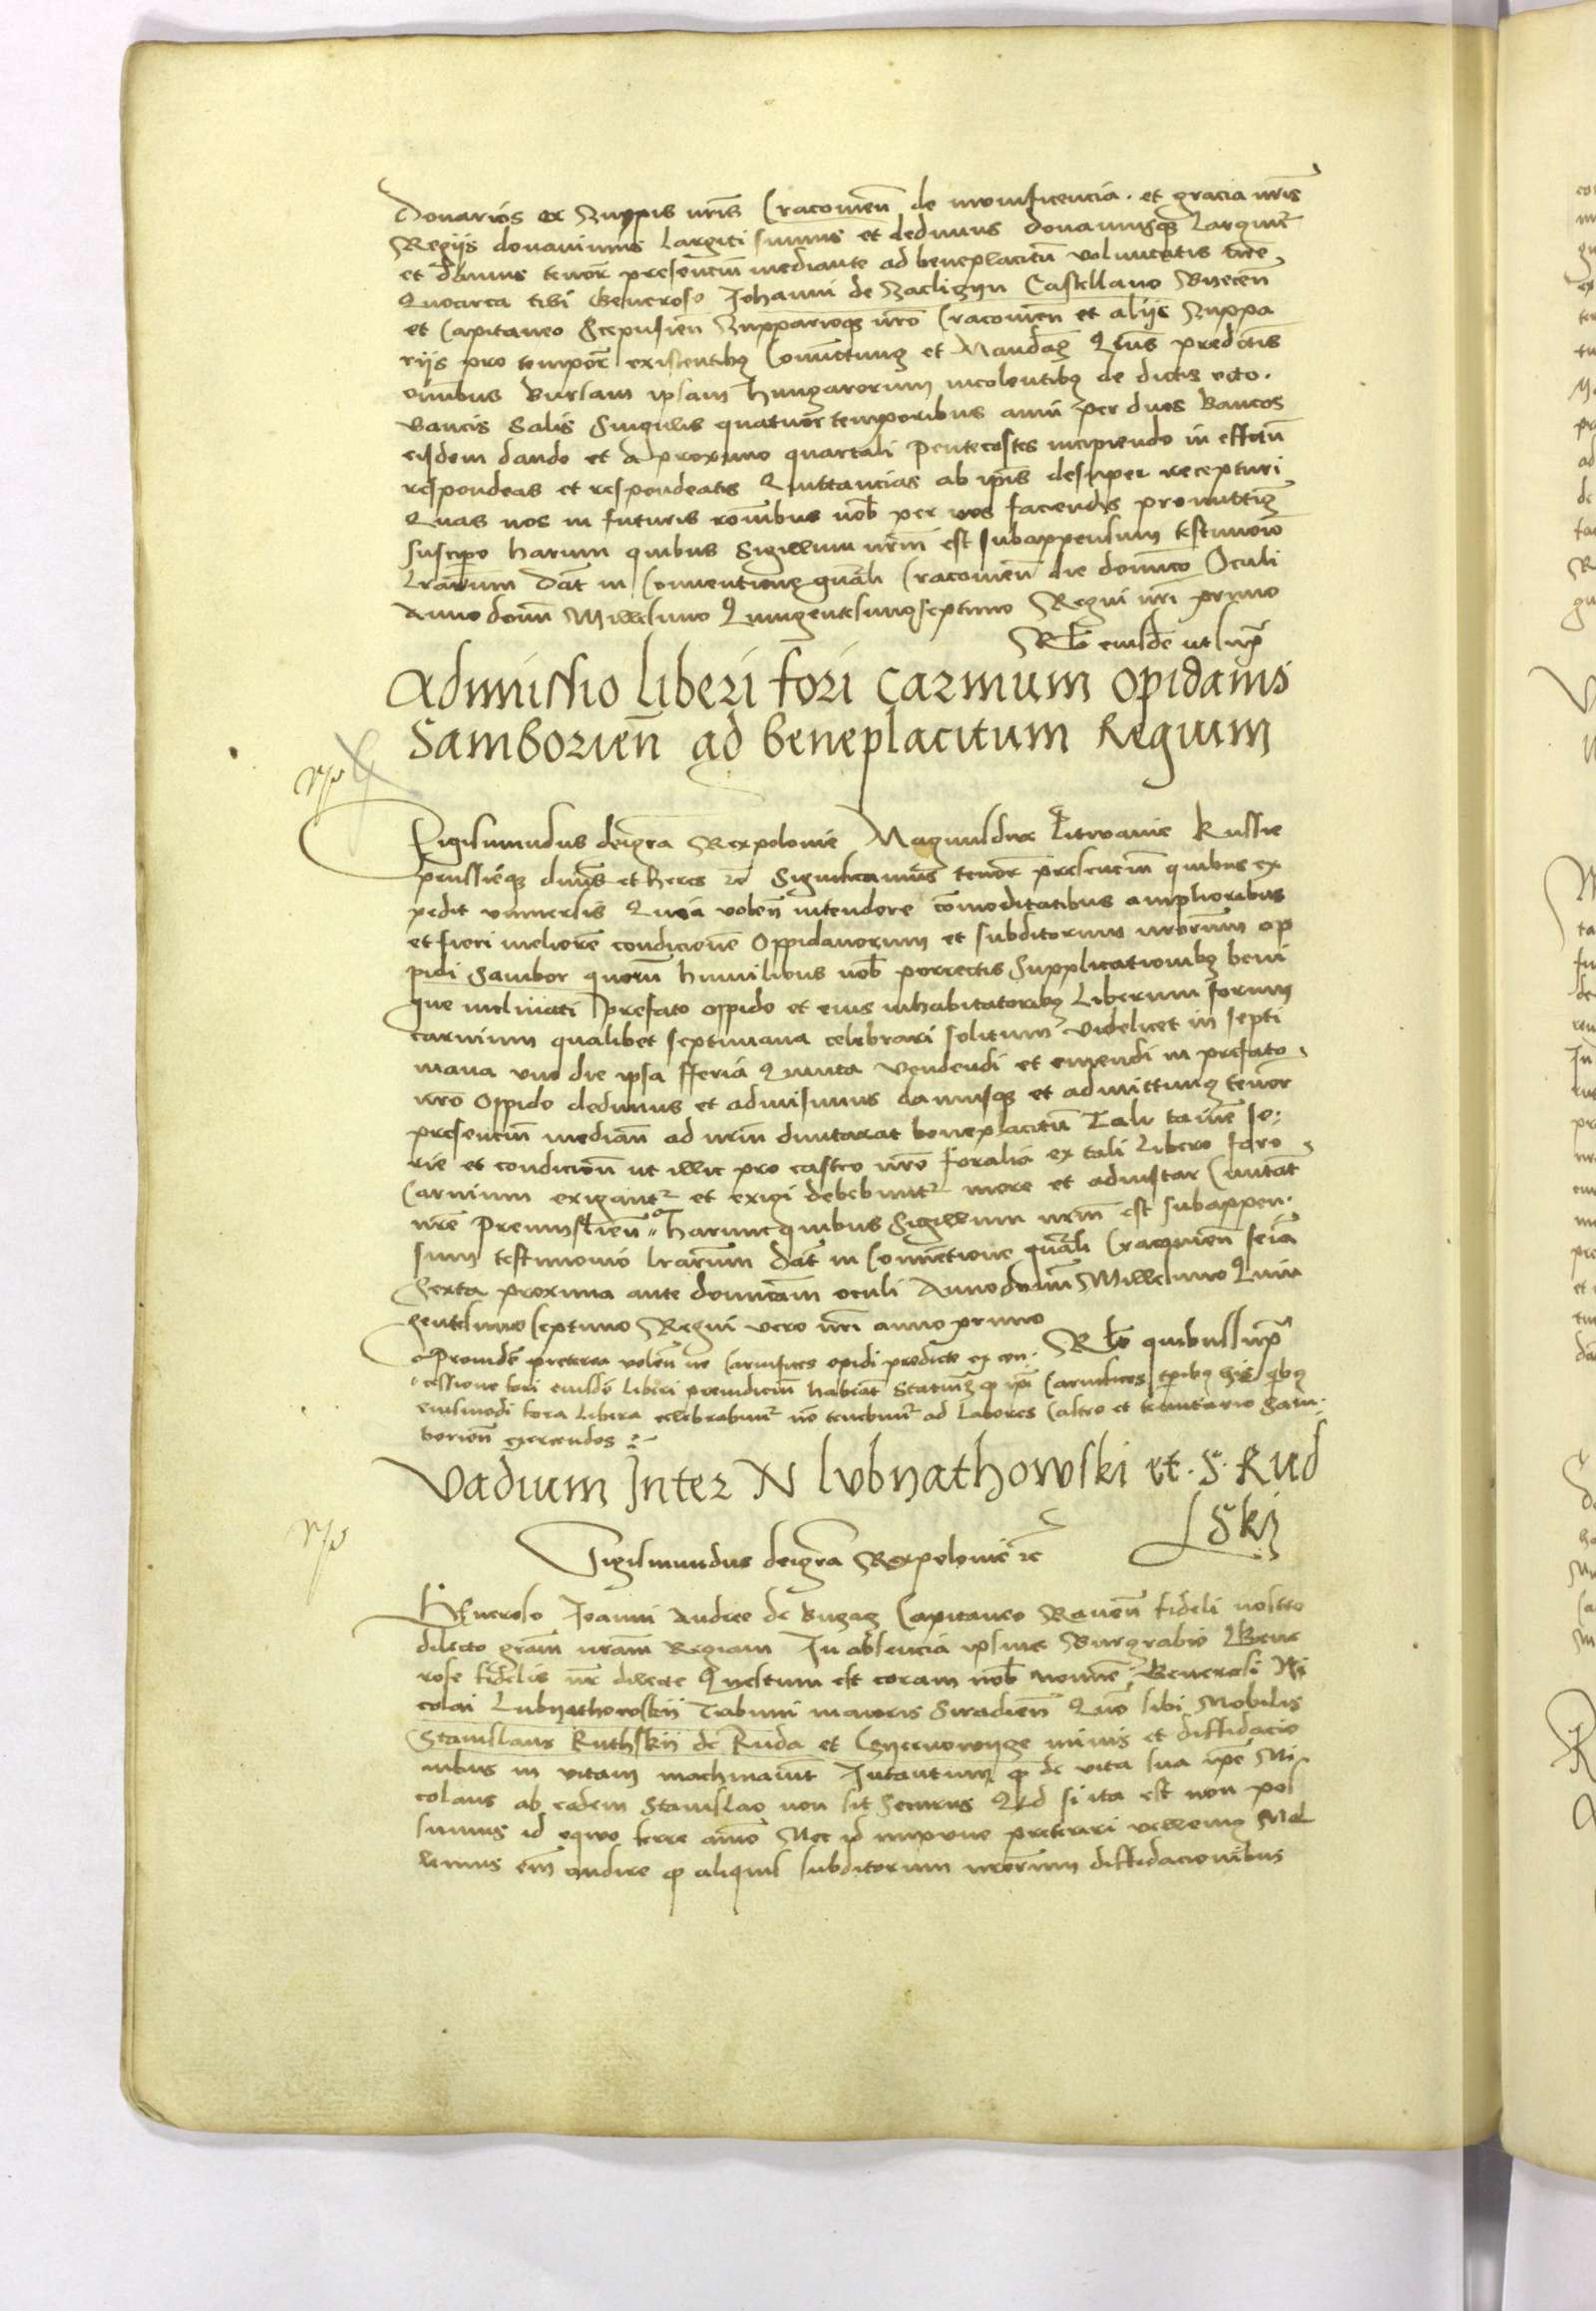 donarios ex Zuppis nris Cracovien de munificencia et gracia nris
Regijs donavimus largiti sumus et dedimus donamusq largimr
et damus tenor presencium mediante ad beneplacitu voluntatis nre
Quocirca tibi Generoso Johanni de Castellano
et Capitaneo Scepusien Zupparioq nro Cracovien et alijs Zuppa
rijs pro tempor existentibq Comittimq et Mandamq predictis
omnibus Bursam ipsam hungarorum incolentibq de dictis octo
bancis Salis singulis quatuor temporibus anni per duos bancos
eisdem dando et a proximo quartali Pentecostes incipiendo in effectu
respondeas et respondeatis Quittancias ab ipsis desuper recepturi
Quas nos in futuris ronibus nob per vos faciendis promittimq
suscipe harum quibus Sigillum nrm est subappensum testimoio
lrarum Dat in Conventione gnali Cracovien die domico Oculi
Anno domi Millesimo Quingentesimoseptimo Regni nri primo
Rlo eiusde ut supra
Admissio liberi fori carnium opidanis
Samborien ad beneplacitum Regium
Sigismundus dei gra Rex polonie Magnus dux Litwanie Russie
prussieq dns et heres Significamus tenor presencium quibus ex
pedit universis Quia volen intendere comoditatibus amplioribus
et fieri meliore condicione Oppidanorum et subditorum nrorum op
pidi Sambor quoru humilibus nob porrectis Supplicationibq beni
gne inclinati prefato oppido et eius inhabitatoribq Liberum forum
carnium qualibet septimana celebrari solitum videlicet in septi
mana uno die ipsa fferia Quinta vendendi et emendi in prefato
nro Oppido dedimus et admisimus damusq et admittimq tenor
presencium median ad nrm duntaxat beneplacitu Tali tame se
rie et condicion ut illic pro castro nro foralia ex tali Libero foro
Carnium exigantr et exigi debebuntr more et ad instar Civitat
nre Premislien harum quibus Sigillum nrm est subappen
sum testimonio lrarum Dat in Conventione gnali Cracovien feria
Sexta proxima ante dominicam oculi Anno domi Millesimo Quin
gentesimo septimo Regni vero nri anno primo
Rlo quibus supra
Proinde preterea volen ne Carnifices opidi predicti ex con
cessione fori eiusde Liberi preiudicium habeat Statuimq q ipi Carnifices tpibq his qibq
eiusmodi fora libera celebrabuntr no tenebuntr ad Labores Castro et Sam
borien exercendos
Vadium Inter N lubnathowski et S Rud
Lski
Sigismundus dei gra Rex polonie
Generoso Joanni Andree de Capitaneo Raven fideli nostro
dilecto gram nram Regiam In absencia ipsius Burgrabio Gene
rose fidelis nr dilecte Questum est coram nob nomine Generosi Ni
colai Lubnathowskij Tribuni maioris Siradien Quo sibi Nobilis
Stanislaus Ruthskij de Ruda et minis et diffidacio
nibus in vitam machinavit Intantum q de vita sua ipe Ni
colaus ab eodem Stanislao non sit securus Qd si ita est non pos
sumus id equo ferre aimo Nec id impune preteriri vellemq Nol
lemus em audire q aliquis subditorum nrorum diffidacionibus